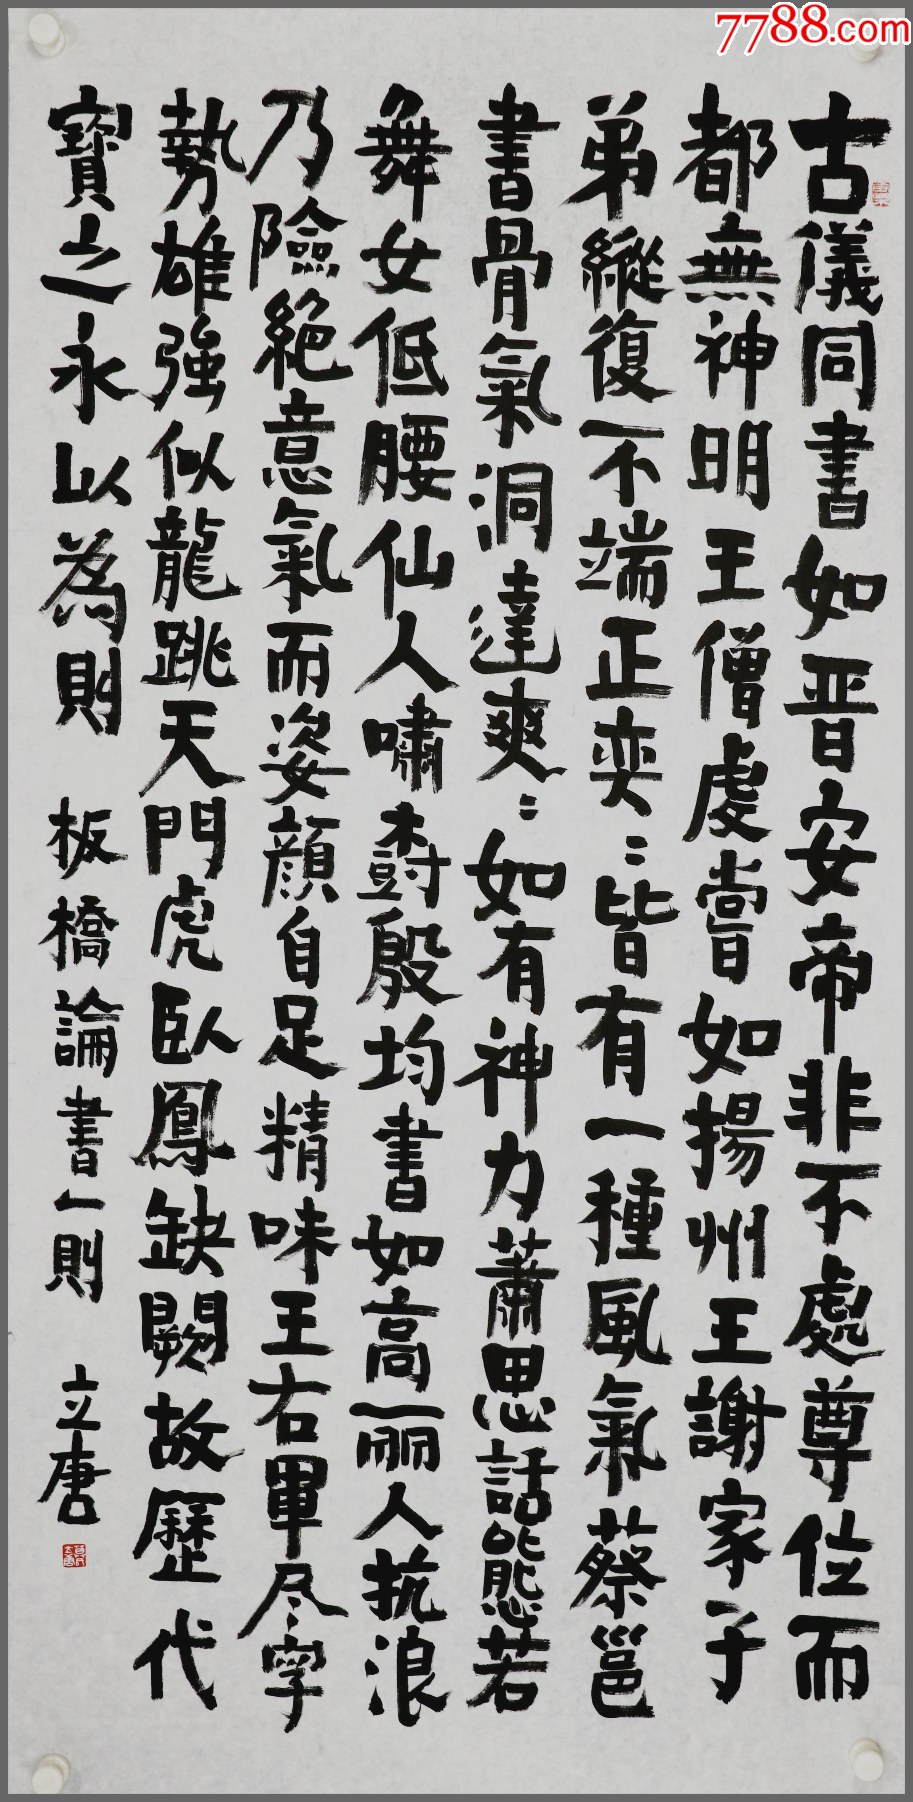 7788.com
古儀同書如晋安帝非不處尊位而
都無神明王僧虔嘗如揚州王謝家子
弟縱復不端正奕〻皆有一種風氣蔡邕
書骨氣洞達爽〻如有神力蕭思話態若
舞女低腰仙人嘯樹殷均書如高麗人抗浪
乃險絕意氣而姿顔自足精味王右軍尽字
勢雄強似龍跳天門虎臥鳳缺闕故歷代
寳之永以為則 板橋論書一則 立唐